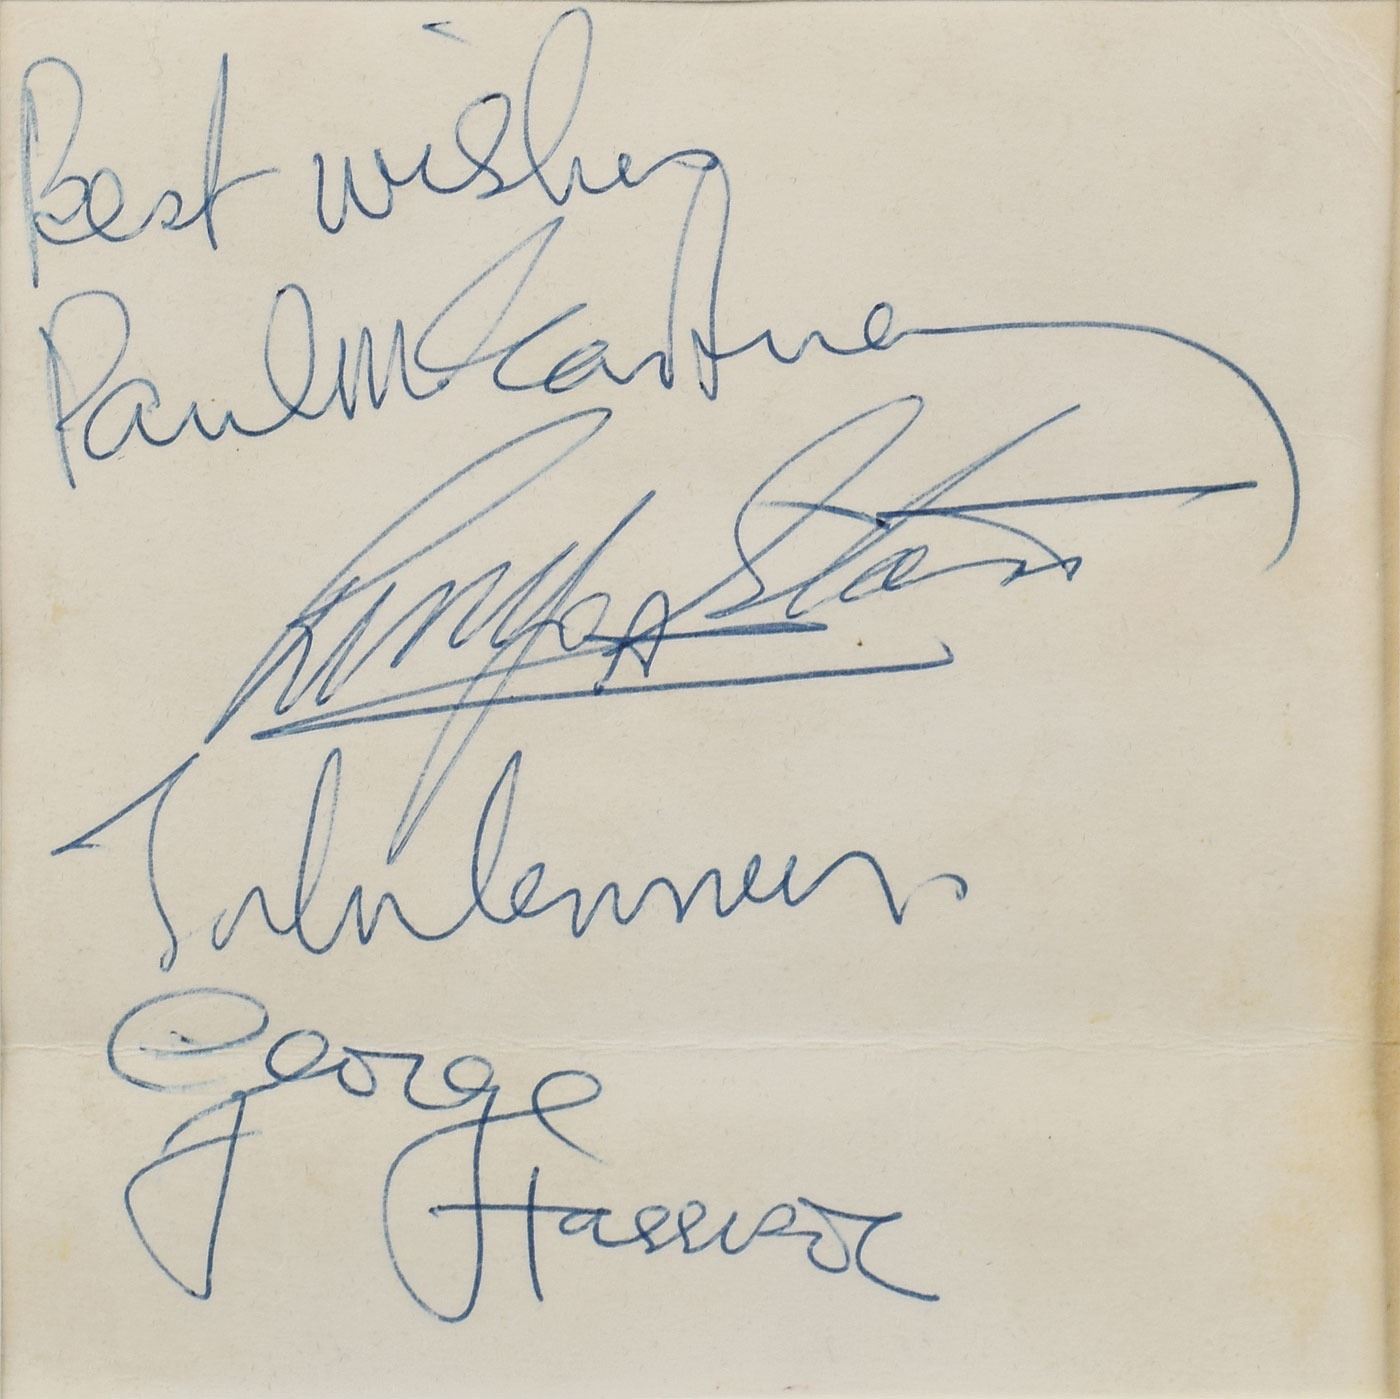 Best wishes
Paul McCartney
Ringo Starr
John Lennon
George
Harrison